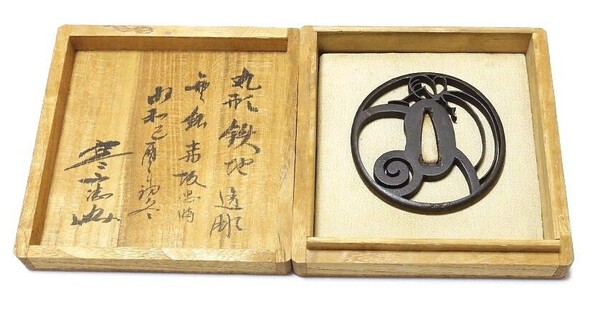 丸形鉄地透彫
無銘赤坂忠時
昭和己酉年初冬
寒山誌